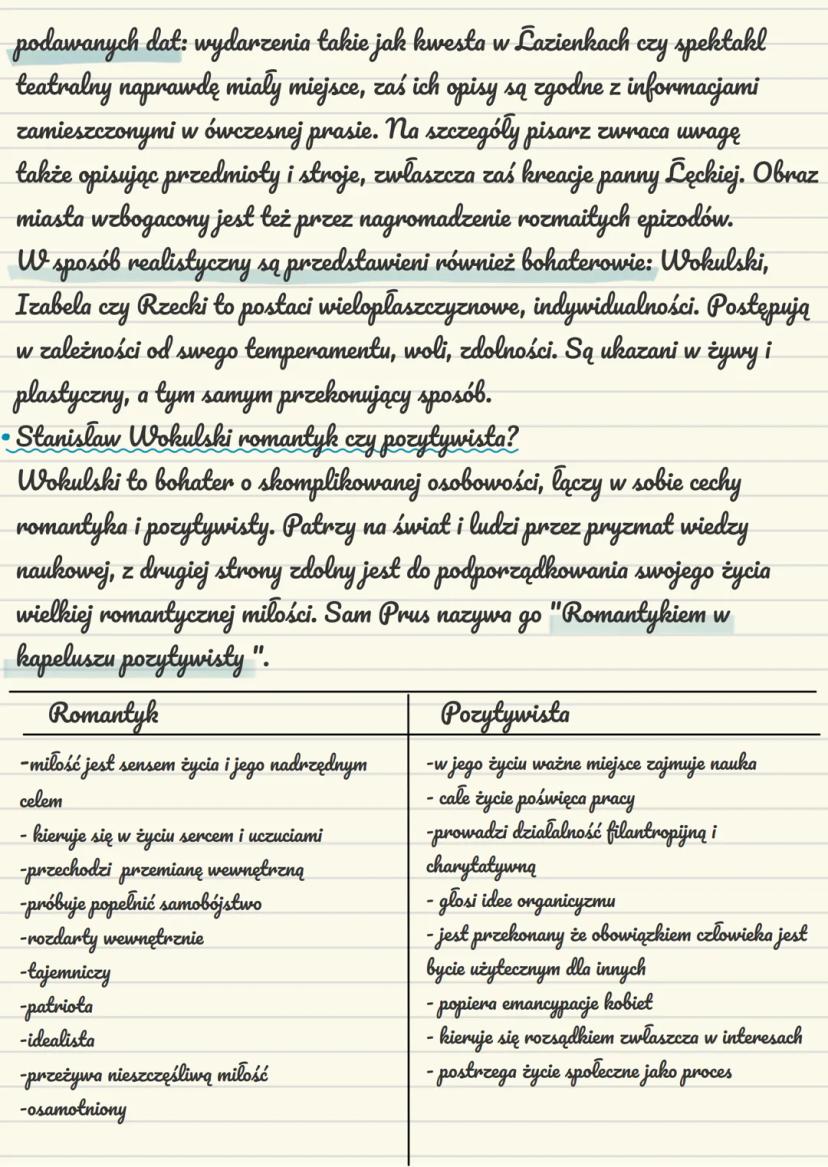 podawanych dat: wydarzenia takie jak kwesta w Łazienkach czy spektakl
teatralny naprawdę miały miejsce, zaś ich opisy są zgodne z informacjami
zamieszczonymi w ówczesnej prasie. Na szczegóły pisarz zwraca uwagę
także opisując przedmioty i stroje, zwłaszcza zaś kreacje panny Łęckiej. Obraz
miasta wzbogacony jest też przez nagromadzenie rozmaitych epizodów.
W sposób realistyczny są przedstawieni również bohaterowie: Wokulski,
Izabela czy Rzecki to postaci wielopłaszczyznowe, indywidualności. Postępują
w zależności od swego temperamentu, woli, zdolności. Są ukazani w żywy i
plastyczny, a tym samym przekonujący sposób.
• Stanisław Wokulski romantyk czy pozytywista?
Wokulski to bohater o skomplikowanej osobowości, łączy w sobie cechy
romantyka i pozytywisty. Patrzy na świat i ludzi przez pryzmat wiedzy
naukowej, z drugiej strony zdolny jest do podporządkowania swojego życia
wielkiej romantycznej miłości. Sam Prus nazywa go "Romantykiem w
kapeluszu pozytywisty ".
Romantyk
-miłość jest sensem życia i jego nadrzędnym
celem
- kieruje się w życiu sercem i uczuciami
-przechodzi przemianę wewnętrzną
-próbuje popełnić samobójstwo
-rozdarty wewnętrznie
-tajemniczy
-patriota
-idealista
-przeżywa nieszczęśliwą miłość
-osamotniony
Pozytywista
-w jego życiu ważne miejsce zajmuje nauka
- całe życie poświęca pracy
-prowadzi działalność filantropijną i
charytatywną
- głosi idee organicyzmu
- jest przekonany że obowiązkiem człowieka jest
bycie użytecznym dla innych
- popiera emancypacje kobiet
- kieruje się rozsądkiem zwłaszcza w interesach
- postrzega życie społeczne jako proces